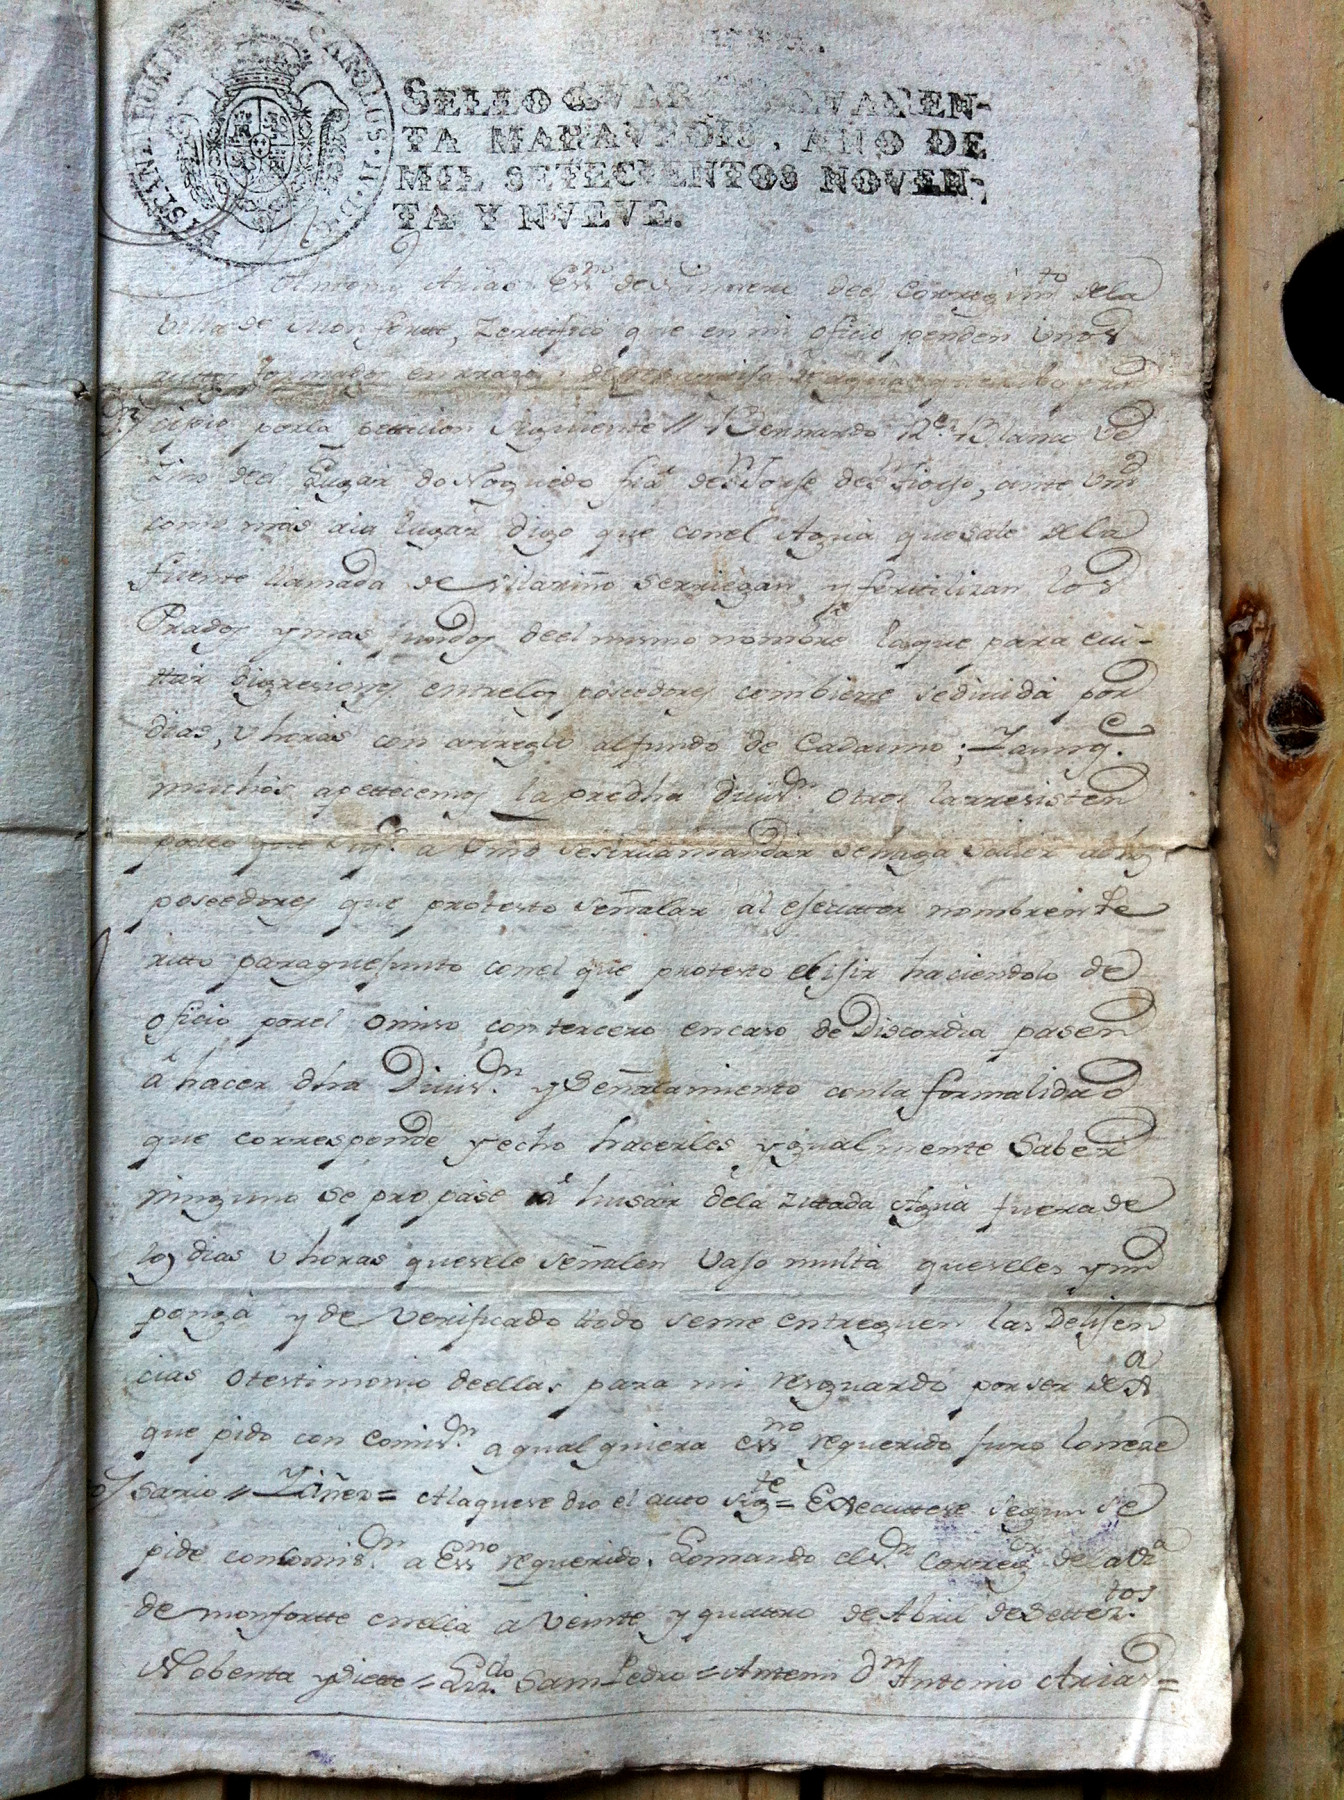 HISPANIARUM CAROLUS IV D G
SELLO QVARTO, QVAREN-
TA MARAVEDIS, AÑO DE
MIL SETECIENTOS NOVEN-
TA Y NVEVE.
Antonio Arias Essno de Numero del Corregimto dela
Villa de Monforte, Zertifico que en mi oficio penden Unos
autos formados en rrazon de de aguas que
cipio porla peticion siguiente // Bernardo Blanco Ve
zino deel Lugar do Noguedo de ante Vmd
como mas aia lugar digo que conel Agua quesale dela
fuente llamada de Vilariño serriegan, y fertilizan los
Prados y mas fundos deel mismo nombre laque para evi-
ttar digresiones entrelos poseedores combiene sedivida por
dias, v horas con arreglo alfundo de Cadauno; Yaunq.e
muchos apettecemos la predha Divisn. otros larresisten
porlo que supco a Vmd sesirva mandar sehaga saver alos
poseedores que protesto señalar al efecutor nombren Pe
ritto paraquejunto conel que protesto elijir haciendolo de
oficio porel omiso contercero encaso de Discordia pasen
á hacer dha Divisn. y Señalamiento conla formalidad
que corresponde yecho hacerles ygualmente Saber
ninguno se propase á husar dela zittada Agua fuera de
los dias v horas quesele señalen Vajo multa queseles ym
ponga y de Verificado ttodo seme entreguen las Delijen
cias otestimonio deellas para mi resguardo porser de
que pido con Comisn. aqualquiera Essno requerido juro lonece
sario // Yañez = Alaquese dio el auto sigte = Executtese segun se
pide concomisn. a Essno requerido. Lomando elSr. Corregor dela Va
de monfortte enella a Veinte y quattro de Abril deSettectos
Nobenta ySiette = Lizdo Sampedro = Antemi Dn Antonio Arias =